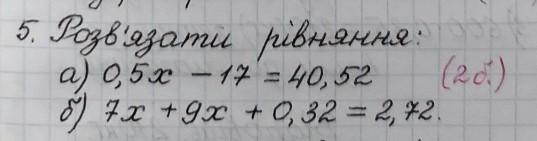 5. Розв'язати рівняння:
а) 0,5x - 17 = 40,52 (2б.)
б) 7x + 9x + 0,32 = 2,72.